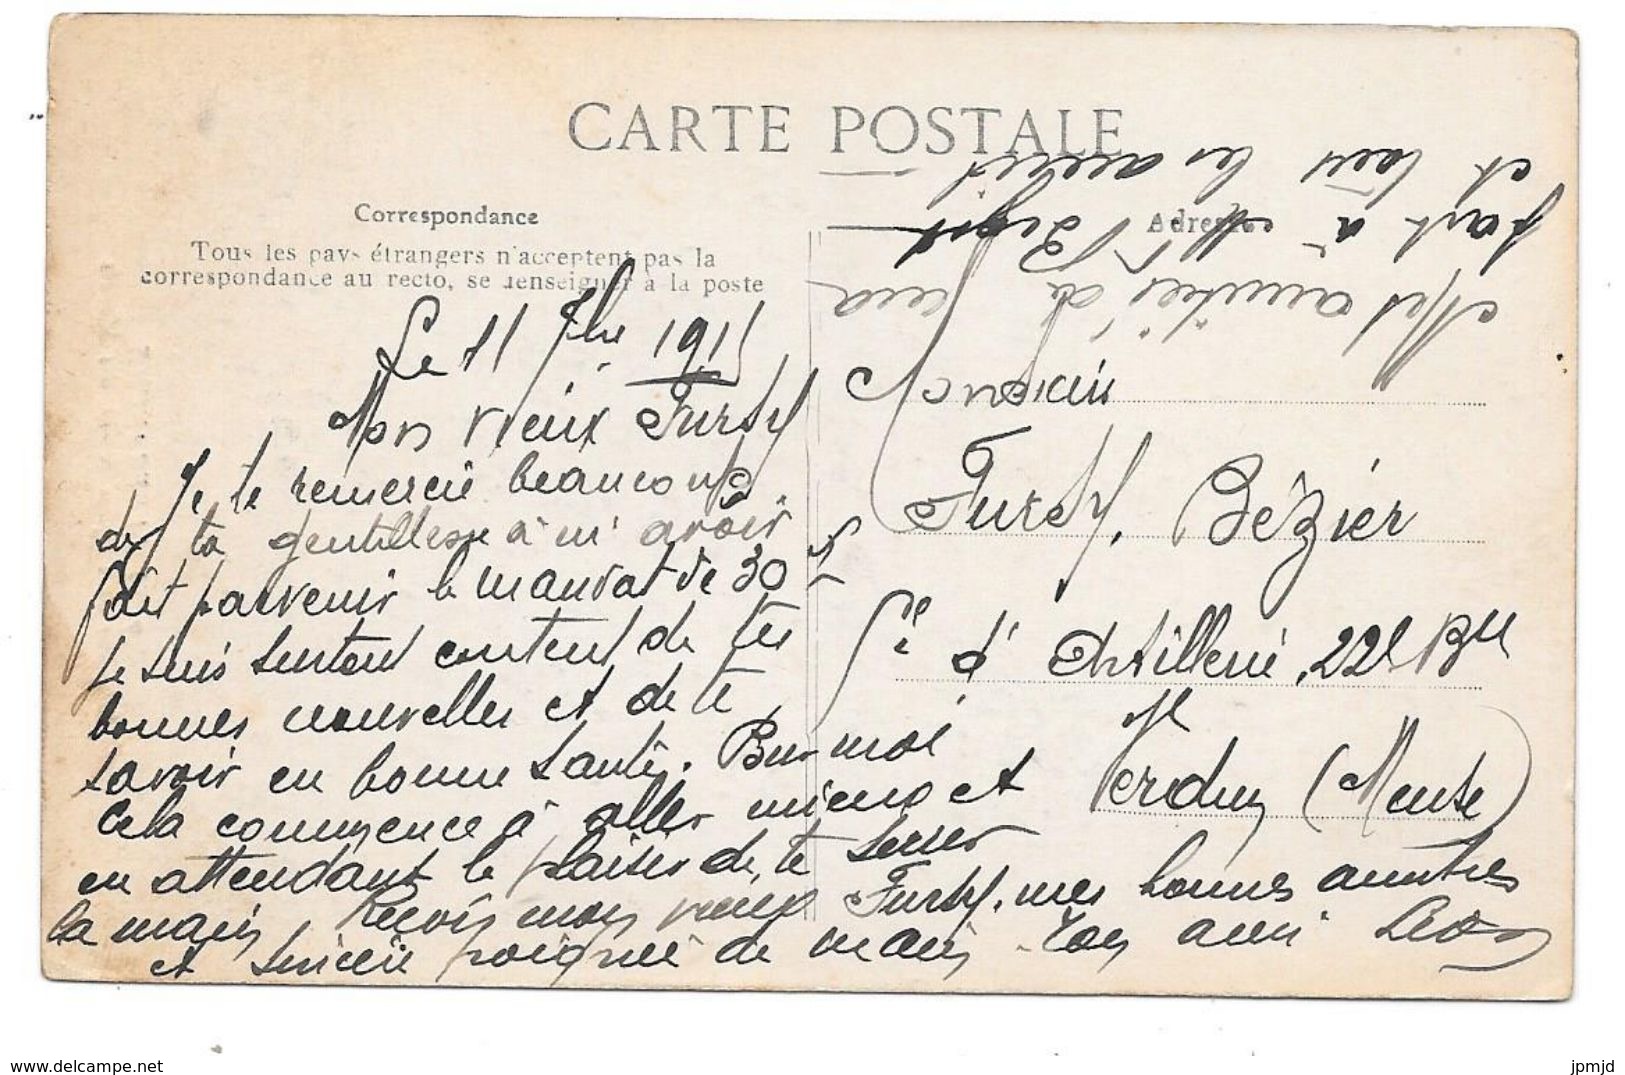 CARTE POSTALE
Correspondance
Tous les pays étrangers n'acceptent pas la
correspondance au recto, se renseigner à la poste
Adresse
Le 11 7bre 1911
Mon vieux Fursy
Je te remercie beaucoup
de ta gentillesse à m'avoir
fait parvenir le mandat de 30 f
Je suis surtout content de tes
bonnes nouvelles et de te
savoir en bonne santé. Pour moi
cela commence à aller mieux et
en attendant le plaisir de te serrer
la main Reçois mon vieux Fursy, mes bonnes amitiés
et sincère poignée de main. Ton ami Léon
Monsieur
Fursy. Bézier
5e d'Artillerie, 22e Bie
Verdun (Meuse)
Mes amitiés de ma
part à Mr
et tous les amis
jpmjd
www.delcampe.net